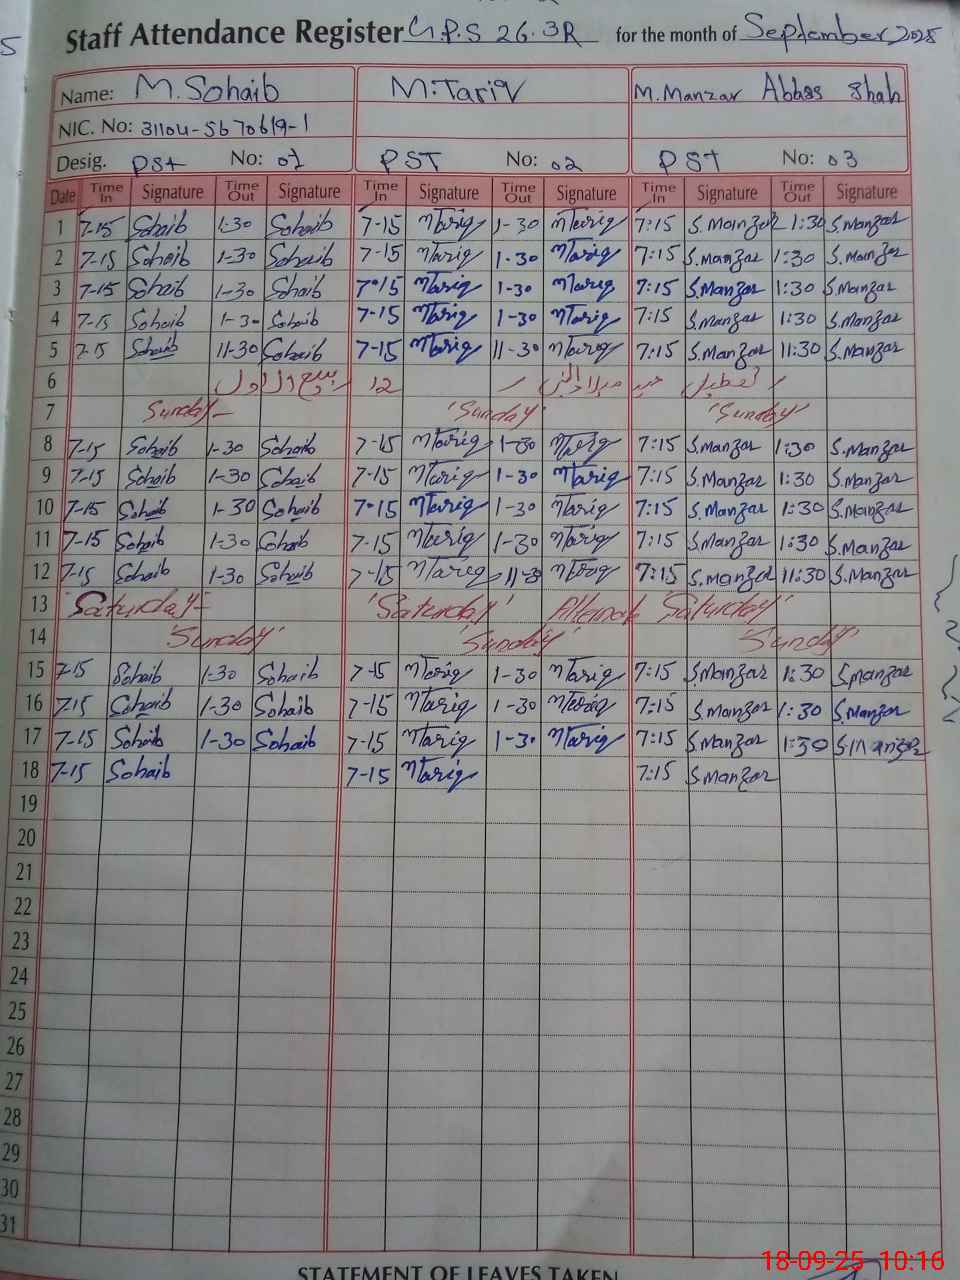 Staff Attendance Register G.P.S 26.3R for the month of September 2025
Name: M.Sohaib M.Tariq M.Manzar Abbas Shah
NIC. No: 31104-5670619-1
Desig. PST No: 01 PST No: 02 PST No: 03
Date Time In Signature Time Out Signature Time In Signature Time Out Signature Time In Signature Time Out Signature
1 7-15 Sohaib 1-30 Sohaib 7-15 MTariq 1-30 MTariq 7:15 S.Manzar 1:30 S.Manzar
2 7-15 Sohaib 1-30 Sohaib 7-15 MTariq 1-30 MTariq 7:15 S.Manzar 1:30 S.Manzar
3 7-15 Sohaib 1-30 Sohaib 7-15 MTariq 1-30 MTariq 7:15 S.Manzar 1:30 S.Manzar
4 7-15 Sohaib 1-30 Sohaib 7-15 MTariq 1-30 MTariq 7:15 S.Manzar 1:30 S.Manzar
5 7-15 Sohaib 11-30 Sohaib 7-15 MTariq 11-30 MTariq 7:15 S.Manzar 11:30 S.Manzar
6 تعطیل عید میلاد النبی 12 ربیع الاول
7 Sunday- "Sunday" "Sunday"
8 7-15 Sohaib 1-30 Sohaib 7-15 MTariq 1-30 MTariq 7:15 S.Manzar 1:30 S.Manzar
9 7-15 Sohaib 1-30 Sohaib 7-15 MTariq 1-30 MTariq 7:15 S.Manzar 1:30 S.Manzar
10 7-15 Sohaib 1-30 Sohaib 7-15 MTariq 1-30 MTariq 7:15 S.Manzar 1:30 S.Manzar
11 7-15 Sohaib 1-30 Sohaib 7-15 MTariq 1-30 MTariq 7:15 S.Manzar 1:30 S.Manzar
12 7-15 Sohaib 1-30 Sohaib 7-15 MTariq 11-30 MTariq 7:15 S.Manzar 11:30 S.Manzar
13 "Saturday- "Saturday" Alternate "Saturday"
14 "Sunday" "Sunday" "Sunday"
15 7-15 Sohaib 1-30 Sohaib 7-15 MTariq 1-30 MTariq 7:15 S.Manzar 1:30 S.Manzar
16 7-15 Sohaib 1-30 Sohaib 7-15 MTariq 1-30 MTariq 7:15 S.Manzar 1:30 S.Manzar
17 7-15 Sohaib 1-30 Sohaib 7-15 MTariq 1-30 MTariq 7:15 S.Manzar 1:30 S.Manzar
18 7-15 Sohaib 7-15 MTariq 7:15 S.Manzar
19
20
21
22
23
24
25
26
27
28
29
30
31
18-09-25 10:16
STATEMENT OF LEAVES TAKEN